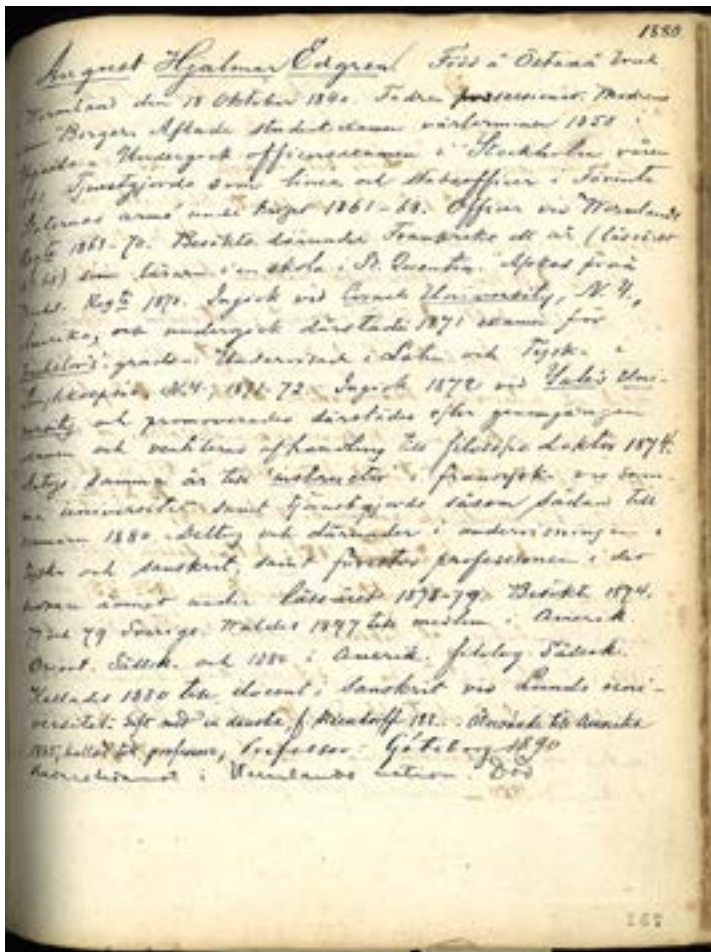 1880
August Hjalmar Edgren. Född å Östanå bruk
Vermland den 18 Oktober 1840. Fadren possessionat. Modren
Borgers. Aflade studentexamen vårterminen 1858 i
Upsala. Undergick officersexamen i Stockholm våren
Tjenstgjorde som linie och stabsofficer i Förenta
Staternas armé under kriget 1861-63. Officer vid Wermlands
Regte 1863-70. Besökte därunder Frankrike ett år (läsåret
som lärare i en skola i St. Quentin. Afsked från
Regte 1870. Ingick vid Cornell University, N.Y.,
Amerika, och undergick därstädes 1871 examen för
Bachelors-graden. Undervisade i Latin och Tysk. i
N.Y. 1871-72. Ingick 1872 vid Yale's Uni-
versity och promoverades därstädes efter genomgången
examen och ventilerad afhandling till filosofie doktor 1874.
samma år till instructor i franska vid sam-
ma universitet samt tjänstgjorde såsom sådan till
sommaren 1880. Deltog och därunder i undervisningen i
tyska och sanskrit, samt förestod professionen i det
ämnet under läsåret 1878-79. Besökte 1874,
och 79 Sverige. Valdes 1877 till medlem i Amerik.
Orient. Sällsk. och 1880 i Amerik. filolog. Sällsk.
Kallades 1880 till docent i Sanskrit vid Lunds uni-
versitet. Gift med en danska, f. Steendorff 188 . Återvände till Amerika
1885, kallad till professor, Professor i Göteborg 1890
i Vermlands nation. Död
167